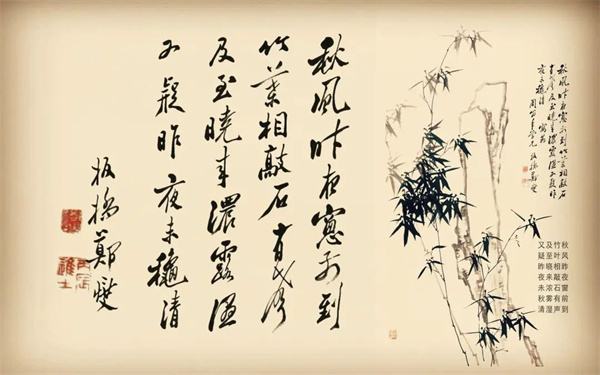 秋風昨夜窓前到
竹葉相敲石有聲
及至曉来濃露濕
又疑昨夜未穐清
板橋鄭燮
秋風昨夜窓前到竹葉相敲石
有聲及至曉来濃露濕又疑昨
夜未穐清
板橋鄭燮
秋风昨夜窗前到
竹叶相敲石有声
及至晓来浓雾湿
又疑昨夜未秋清